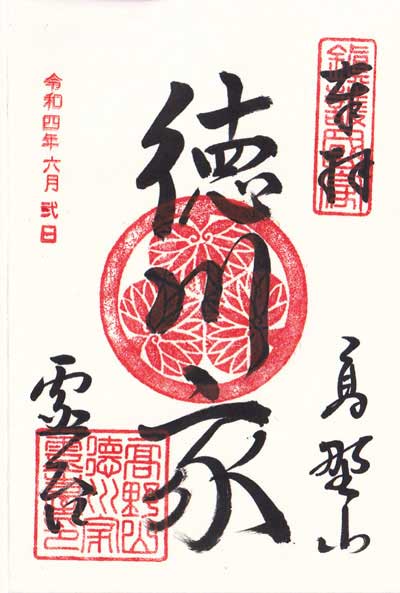 奉拝
高野山
徳川家
霊台
令和四年六月弐日
高野山
徳川家
霊台